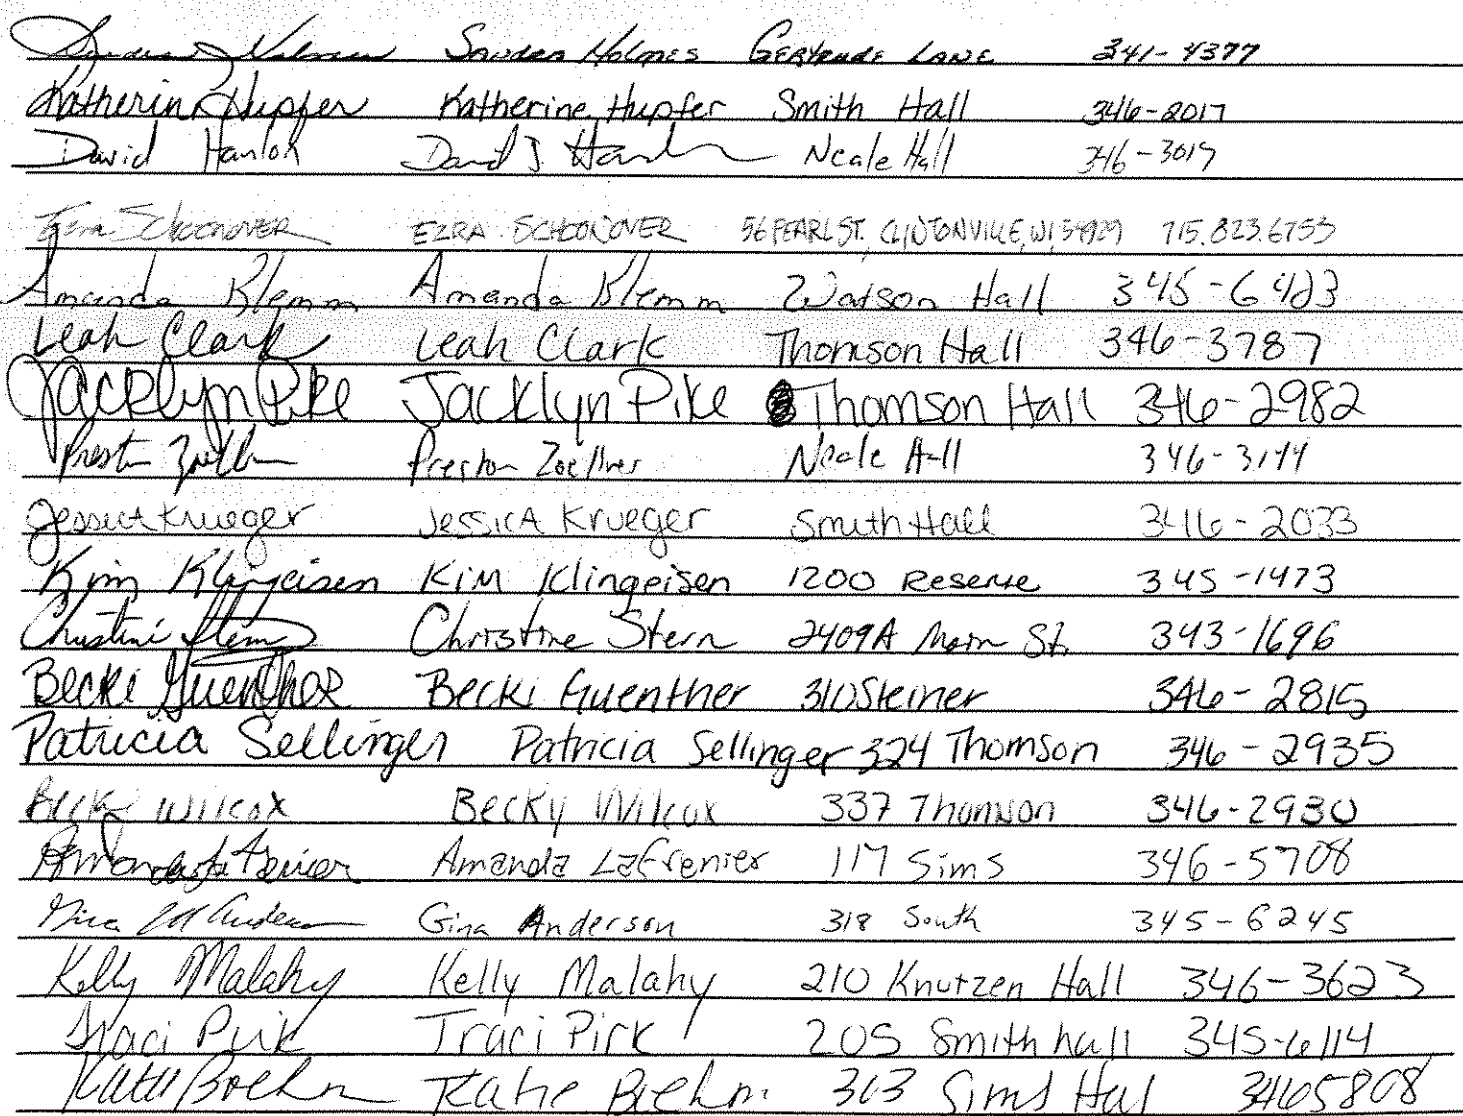 Holmes GERTRUDE LANE 341-4377
Katherine Hupfer Katherine Hupfer Smith Hall 346-2017
David Hanlon David J Neale Hall 346-3017
Ezra SCHOONOVER EZRA SCHOONOVER 56 PEARL ST. CLINTONVILLE, WI 54929 715.823.6753
Amanda Klemm Amanda Klemm Watson Hall 345-6423
Leah Clark Leah Clark Thomson Hall 346-3787
Jacklyn Pike Jacklyn Pike Thomson Hall 346-2982
Preston Zoellner Preston Zoellner Neale Hall 346-3144
Jessica Krueger Jessica Krueger Smith Hall 346-2033
Kim Klingeisen Kim Klingeisen 1200 Reserve 345-1473
Christine Stern Christine Stern 2409A Main St. 343-1696
Becki Guenther Becki Guenther 310 Steiner 346-2815
Patricia Sellinger Patricia Sellinger 324 Thomson 346-2935
Becky Wilcox Becky Wilcox 337 Thomson 346-2930
Amanda LaFrenier Amanda LaFrenier 117 Sims 346-5708
Gina M Anderson Gina Anderson 318 South 345-6245
Kelly Malahy Kelly Malahy 210 Knutzen Hall 346-3623
Traci Pirk Traci Pirk 205 Smith hall 345-6114
Katie Boehm Katie Boehm 303 Sims Hal 3465808